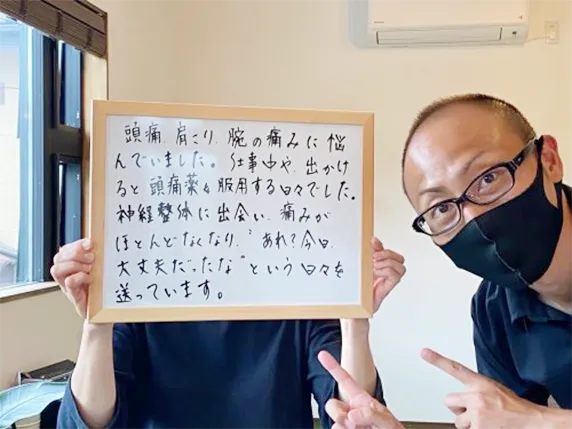 頭痛、肩こり、腕の痛みに悩
んでいました。仕事中や、出かけ
ると頭痛薬を服用する日々でした。
神経整体に出会い、痛みが
ほとんどなくなり、"あれ?今日、
大丈夫だったな"という日々を
送っています。